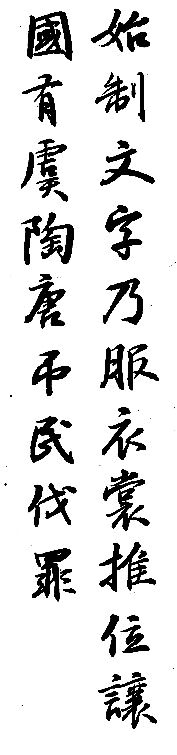 始制文字乃服衣裳推位讓
國有虞陶唐弔民伐罪